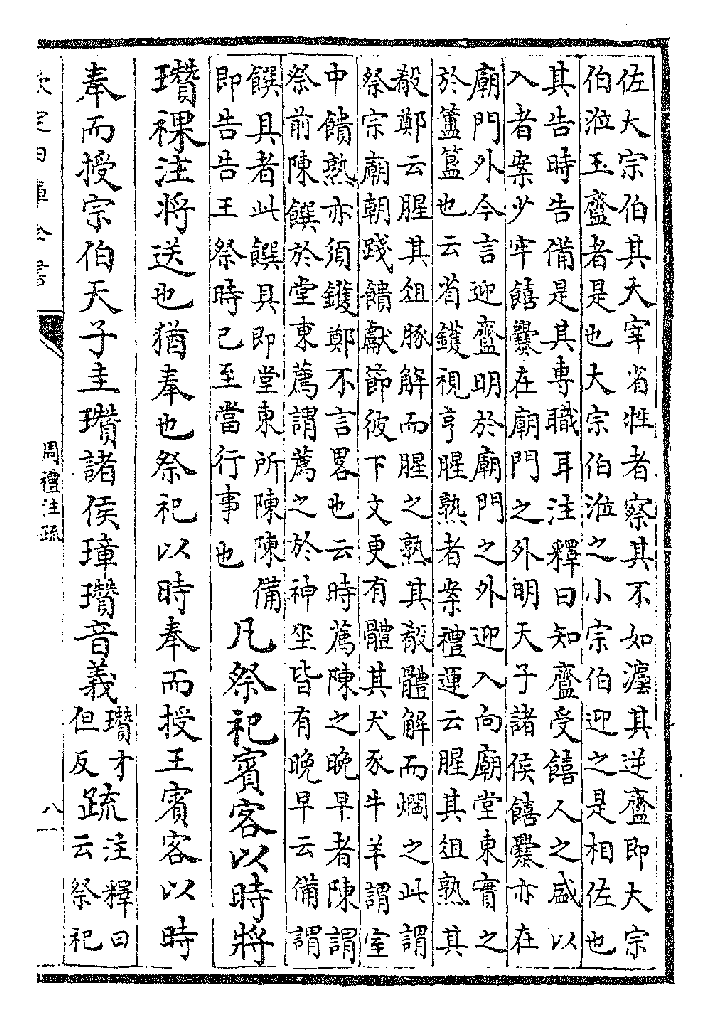 佐大宗伯其大宰省牲者察其不如灋其逆齍即大宗
伯涖玉齍者是也大宗伯涖之小宗伯迎之是相佐也
其告時告備是其專職耳注釋曰知齍受饎人之盛以
入者案少牢饎爨在廟門之外明天子諸侯饎爨亦在
廟門外今言迎齍明於廟門之外迎入向廟堂東實之
於簠簋也云省鑊視亨腥熟者案禮運云腥其俎熟其
殽鄭云腥其俎豚解而腥之熟其殽體解而爓之此謂
祭宗廟朝踐饋獻節彼下文更有體其犬豕牛羊謂室
中饋熟亦須鑊鄭不言畧也云時薦陳之晚早者陳謂
祭前陳饌於堂東薦謂薦之於神坐皆有晚早云備謂
饌具者此饌具即堂東所陳陳備
即告告王祭時已至當行事也
凡祭祀賓客以時將
瓚祼注將送也猶奉也祭祀以時奉而授王賓客以時
奉而授宗伯天子圭瓚諸侯璋瓚音義瓚才但反疏注釋曰云祭祀
欽定四庫全書
周禮注疏
八